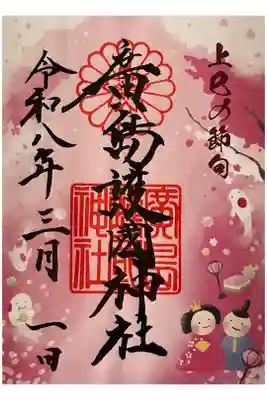 上巳の節句
廣島護國神社
令和八年三月 一日
廣島
神社